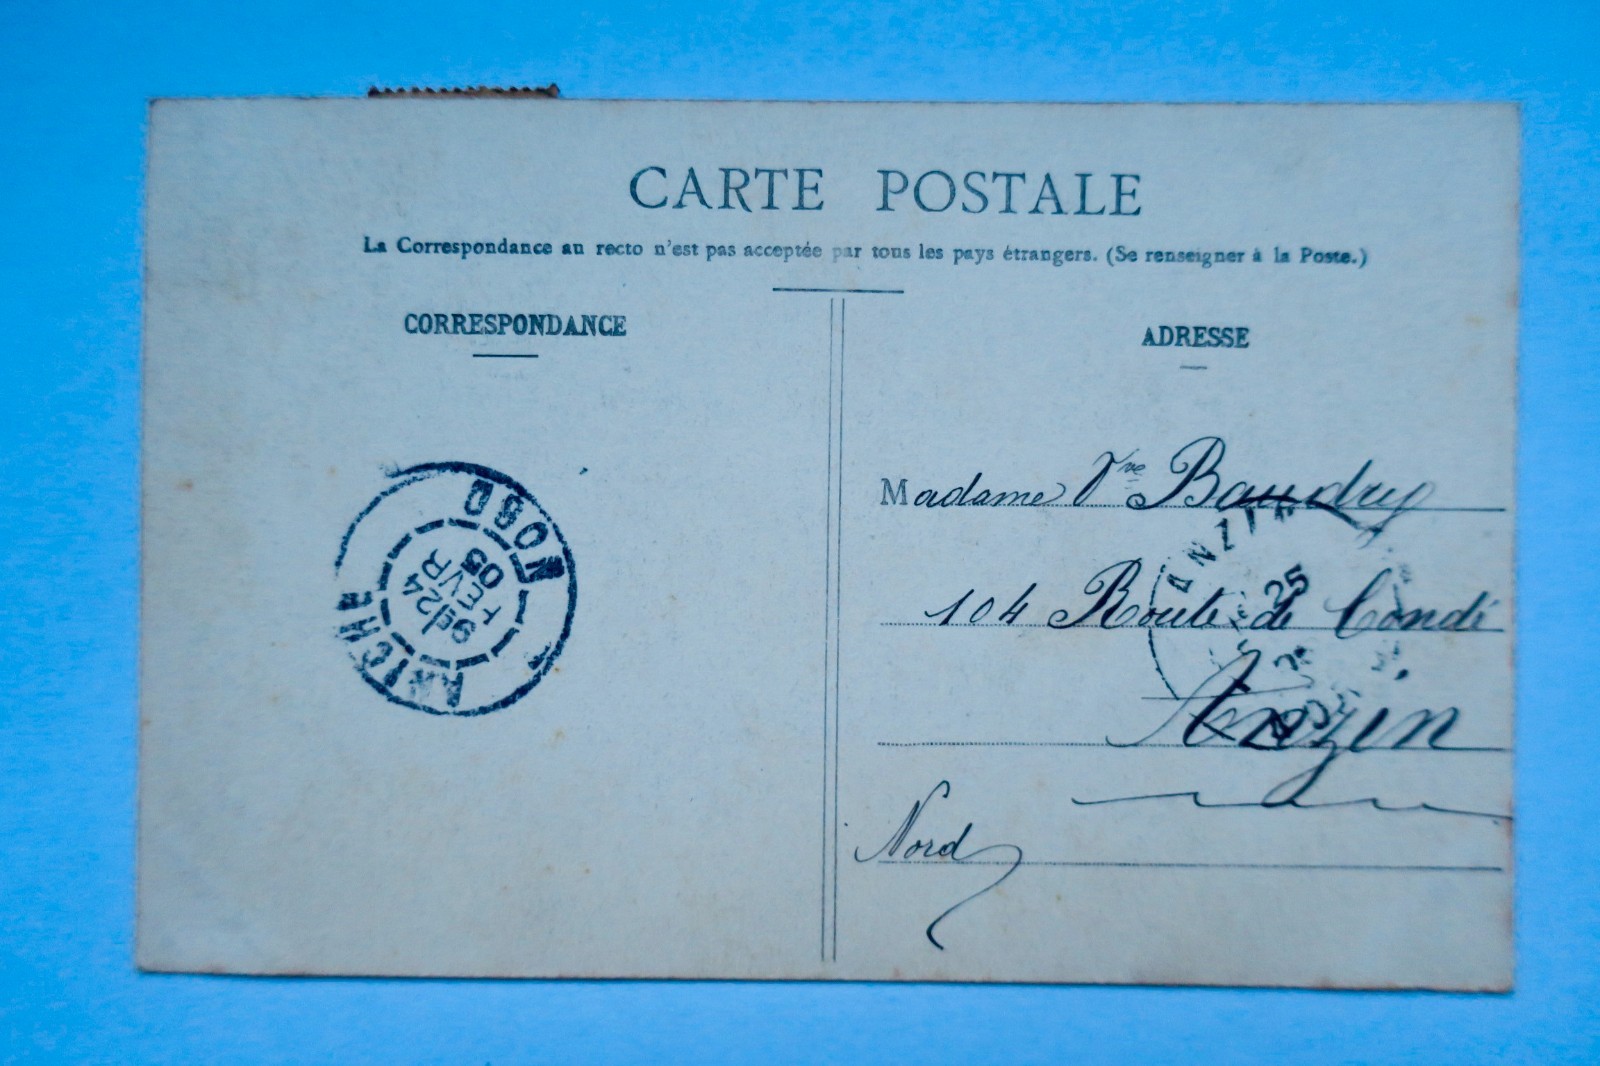 CARTE POSTALE
La Correspondance au recto n'est pas acceptée par tous les pays étrangers. (Se renseigner à la Poste.)
CORRESPONDANCE
ADRESSE
Madame Vve Baudry
104 Route de Condé
Anzin
Nord
ANICHE
NORD
24
FEVR
05
ANZIN
25